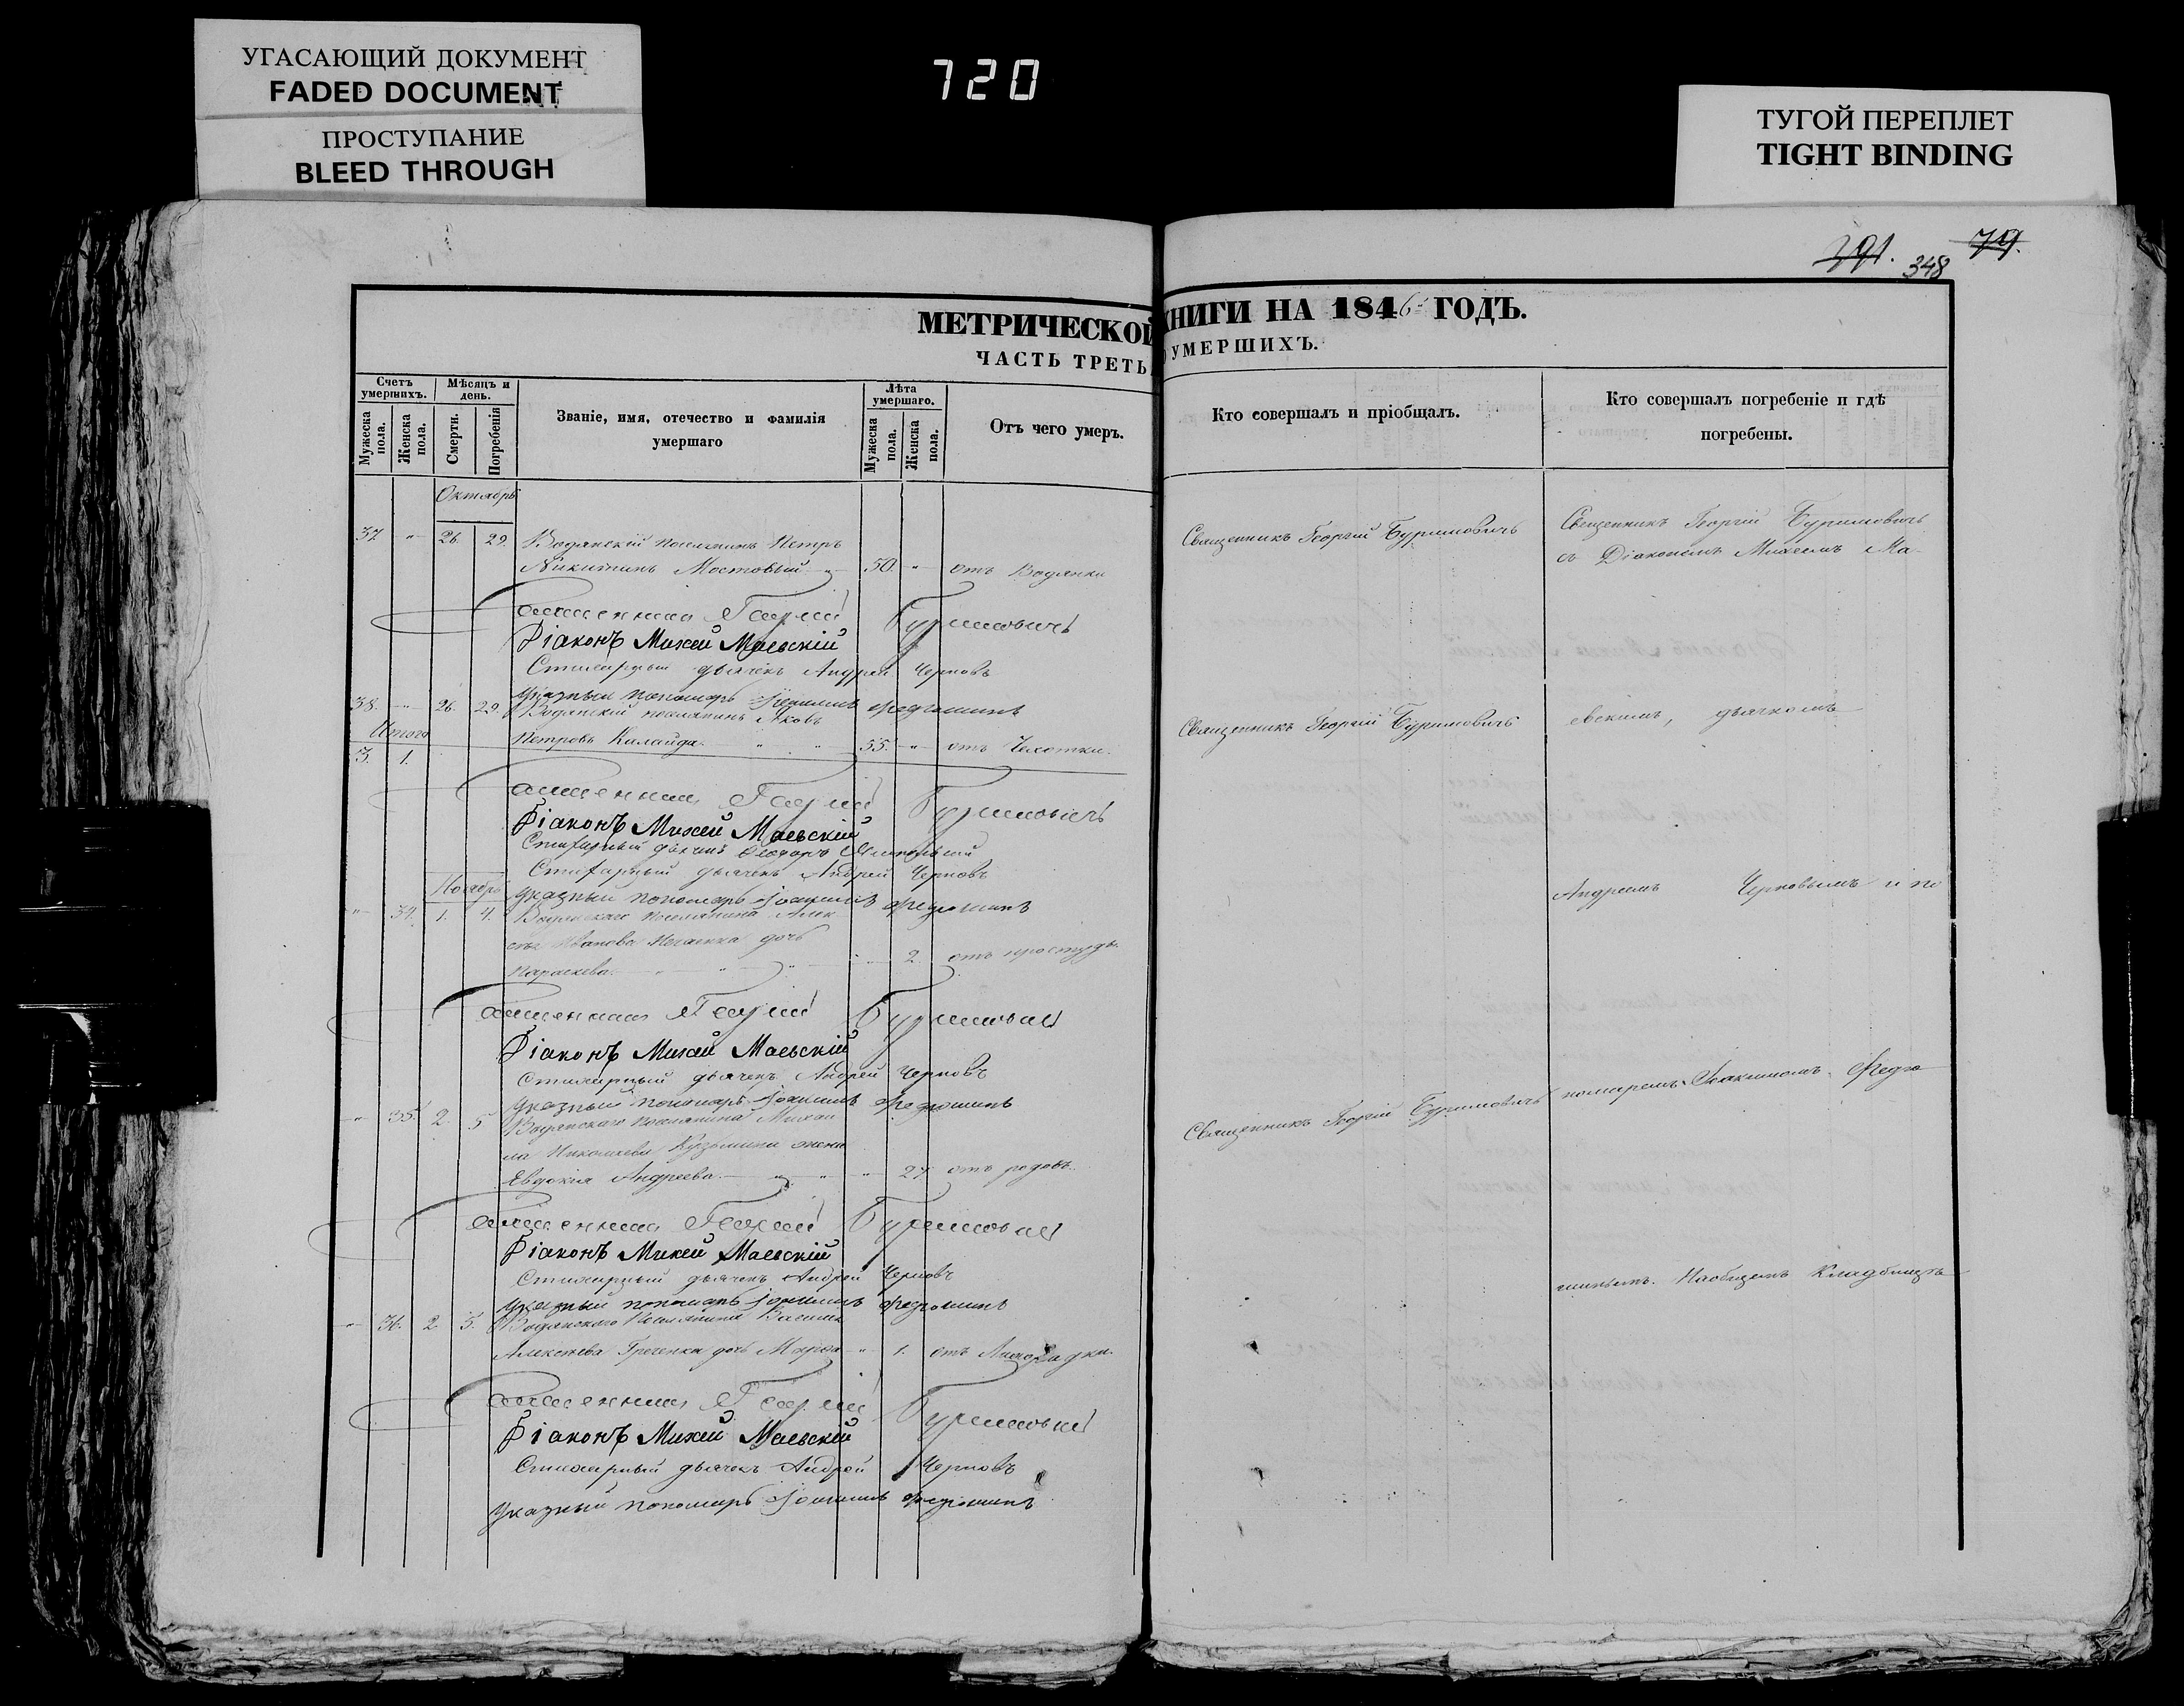 УГАСАЮЩИЙ ДОКУМЕНТ
FADED DOCUMENT
ПРОСТУПАНИЕ
BLEED THROUGH
720
ТУГОЙ ПЕРЕПЛЕТ
TIGHT BINDING
391. 348 79.
МЕТРИЧЕСКОЙ КНИГИ НА 1846 ГОДЪ.
ЧАСТЬ ТРЕТЬ УМЕРШИХЪ.
Счетъ умершихъ.
Мужеска пола.
Женска пола.
Мѣсяцъ и день.
Смерти.
Погребенія
Званіе, имя, отечество и фамилія умершаго
Лѣта умершаго.
Мужеска пола.
Женска пола.
Отъ чего умеръ.
Кто совершалъ и пріобщалъ.
Кто совершалъ погребеніе и гдѣ погребены.
Октябрь
37 " 26. 29. Водянскій поселянинъ Петръ
Никитинъ Мостовый 50. " отъ Водянки
Священникъ Георгій Буримовичъ
Священникъ Георгій Буримовичъ
съ Діакономъ Михеемъ Ма-
Священникъ Георгій Буримовичъ
Діаконъ Михей Маевскій
Стихарный дьячекъ Андрей Черновъ
Указный пономарь Іоакимъ Федюшинъ
38. " 26. 29. Водянскій поселянинъ Яковъ
Петровъ Калайда. " " 55. " отъ Чахотки.
Итого
3. 1.
Священникъ Георгій Буримовичъ
евскимъ, дьячкомъ
Священникъ Георгій Буримовичъ
Діаконъ Михей Маевскій
Стихарный дьячекъ Феодоръ
Стихарный дьячекъ Андрей Черновъ
Указный пономарь Іоакимъ Федюшинъ
Ноябрь
" 34. 1. 4. Водянскаго поселянина Алек
сѣя Иванова дочь
Параскева. " " " 2. отъ простуды.
Андреемъ Черновымъ и по
Священникъ Георгій Буримовичъ
Діаконъ Михей Маевскій
Стихарный дьячекъ Андрей Черновъ
Указный пономарь Іоакимъ Федюшинъ
" 35. 2. 5 Водянскаго поселянина Михаи
ла Николаева Кузьмина жена
Евдокія Андреева. " " " 27. отъ родовъ.
Священникъ Георгій Буримовичъ
номаремъ Іоакимомъ Федю
Священникъ Георгій Буримовичъ
Діаконъ Михей Маевскій
Стихарный дьячекъ Андрей Черновъ
Указный пономарь Іоакимъ Федюшинъ
" 36. 2 5. Водянскаго Поселянина Василія
Алексѣева Греченка дочь Марѳа " 1. отъ Лихорадки.
шинымъ. На общемъ Кладбищѣ
Священникъ Георгій Буримовичъ
Діаконъ Михей Маевскій
Стихарный дьячекъ Андрей Черновъ
Указный пономарь Іоакимъ Федюшинъ